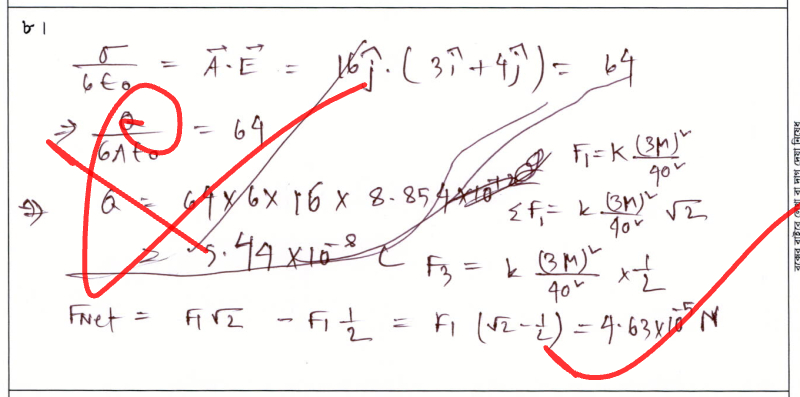 ৮।
σ/6ε₀ = A⃗·E⃗ = 16ĵ·(3î+4ĵ) = 64
⇒ Q/6Aε₀ = 64
⇒ Q = 64×6×16×8.854×10⁻¹²
= 5.44×10⁻⁸ C
F₁ = k (3M)²/40²
ΣF₁ = k (3M)²/40² √2
F₃ = k (3M)²/40² × 1/2
FNet = F₁√2 − F₁ 1/2 = F₁ (√2 − 1/2) = 4.63×10⁻⁵ N